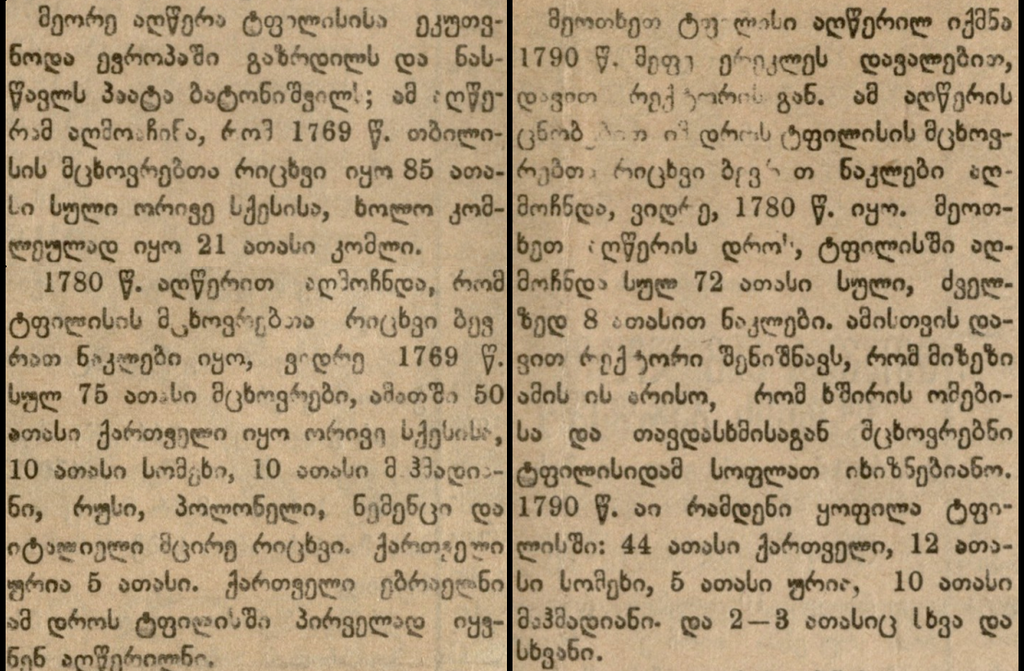 მეორე აღწერა ტფილისისა ეკუთვ-
ნოდა ევროპაში გაზრდილს და ნას-
წავლს პაატა ბატონიშვილს; ამ აღწე-
რამ აღმოაჩინა, რომ 1769 წ. თბილი-
სის მცხოვრებთა რიცხვი იყო 85 ათა-
სი სული ორივე სქესისა, ხოლო კომ-
ლეულად იყო 21 ათასი კომლი.
1780 წ. აღწერით აღმოჩნდა, რომ
ტფილისის მცხოვრებთა რიცხვი ბევ
რათ ნაკლები იყო, ვიდრე 1769 წ.
სულ 75 ათასი მცხოვრები, ამათში 50
ათასი ქართველი იყო ორივე სქესისა,
10 ათასი სომეხი, 10 ათასი მაჰმადია-
ნი, რუსი, პოლონელი, ნემენცი და
იტალიელი მცირე რიცხვი. ქართველი
ურია 5 ათასი. ქართველი ებრაელნი
ამ დროს ტფილისში პირველად იყვ-
ნენ აღწერილნი.
მეოთხეთ ტფილისი აღწერილ იქმნა
1790 წ. მეფე ერეკლეს დავალებით,
დავით რექტორის გან. ამ აღწერის
ცნობებით იმ დროს ტფილისის მცხოვ-
რებთა რიცხვი ბევრ თ ნაკლები აღ-
მოჩნდა, ვიდრე, 1780 წ. იყო. მეოთ-
ხეთ აღწერის დროს, ტფილისში აღ-
მოჩნდა სულ 72 ათასი სული, ძველ-
ზედ 8 ათასით ნაკლები. ამისთვის და-
ვით რექტორი შენიშნავს, რომ მიზეზი
ამის ის არისო, რომ ხშირის ომები-
სა და თავდასხმისაგან მცხოვრებნი
ტფილისიდამ სოფლათ იხიზნებიანო.
1790 წ. აი რამდენი ყოფილა ტფი-
ლისში: 44 ათასი ქართველი, 12 ათა-
სი სომეხი, 5 ათასი ურია, 10 ათასი
მაჰმადიანი. და 2—3 ათასიც სხვა და
სხვანი.